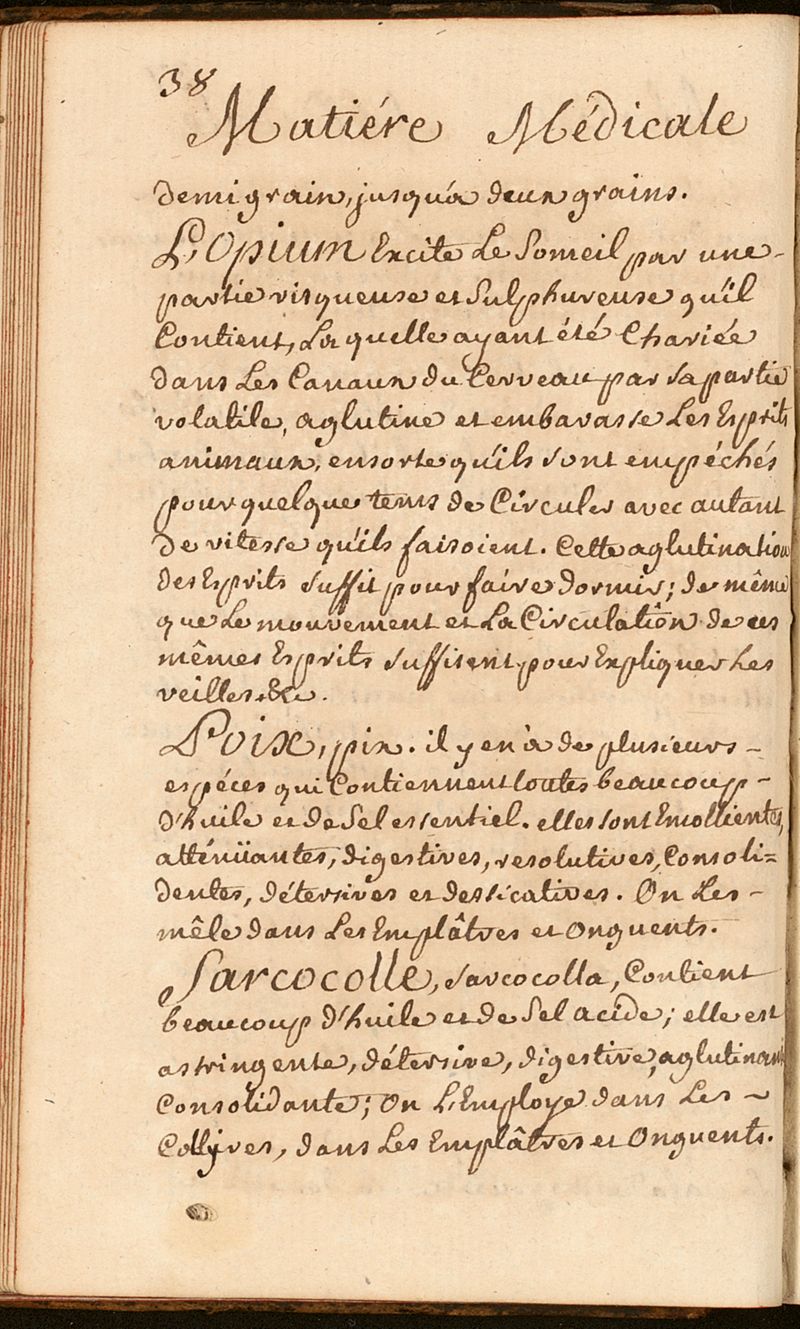 38
Matiére Médicale
demi grain, jusqu'a deux grains.
L'Opium Excite Le Someil par une-
partie visqueuse et Sulphureuse qu'il
Contient, La quelle ayant été Chariée
dans Les Canaux du Cerveau par Sa partie
volatile, aglutine et embarasse Les Esprits
animaux, ensorte qu'ils sont empéchés
pour quelque tems de Circuler avec autant
de vitesse qu'ils faisoient. Cette aglutination
des Esprits suffit pour faire dormir; de même
que Le mouvement et La Circulatîon de ces
mêmes Esprits suffisent pour Expliquer Les
veilles, &c.
Poix, pix. il y en à de plusieurs-
espéces qui Contiennent toutes beaucoup-
d'huile et de Sel essentiel. elles sont Emollientes,
atténüantes, digestives, resolutives, Consoli=
dentes, détersives et dessicatives. On Les-
mêle dans Les Emplâtres et Onguents.
Sarcocolle, sarcocolla, Contient
beaucoup d'huile et de Sel acide; elle est
astringente, détersive, digestive, aglutinant
Consolidante; On L'Employe dans Les ~
Collyres, dans Les Emplâtres et Onguents.